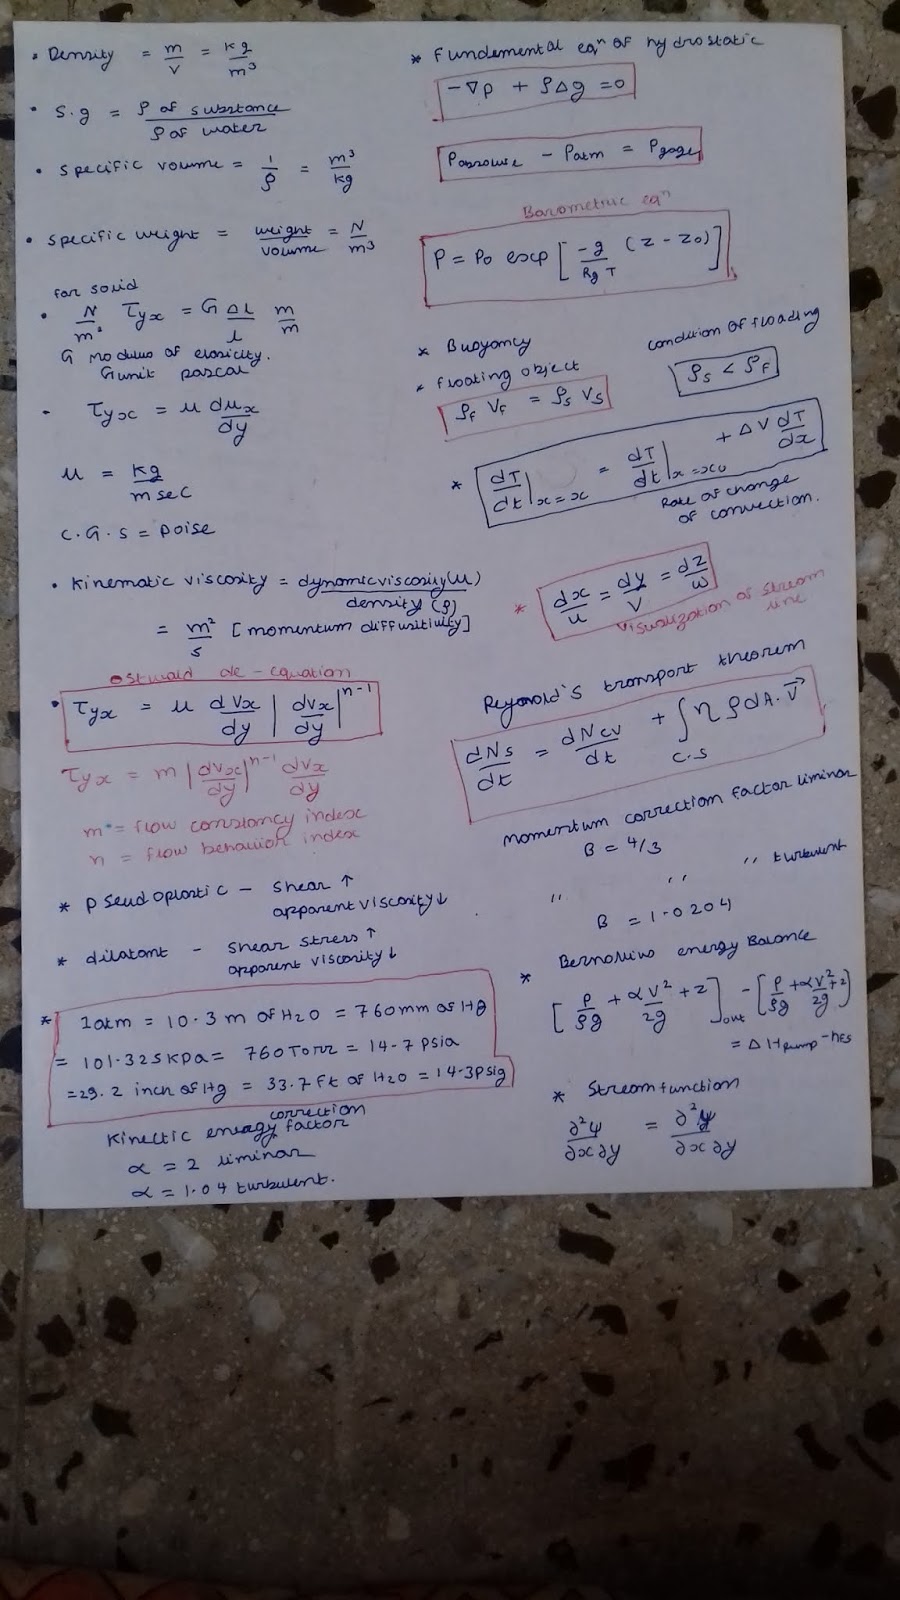 • Density = m/v = kg/m³
• S.g = ρ of substance / ρ of water
• Specific volume = 1/ρ = m³/kg
• Specific weight = weight/volume = N/m³
for solid
• N/m² τyx = G ΔL/L m/m
G modulus of elasticity.
G unit pascal
• τyx = μ dux/dy
μ = kg/m sec
C.G.S = poise
• Kinematic viscosity = dynamic viscosity (μ) / density (ρ)
= m²/s [momentum diffusitivity]
Ostwald de-equation
• τyx = μ dVx/dy |dVx/dy|ⁿ⁻¹
τyx = m |dVx/dy|ⁿ⁻¹ dVx/dy
m = flow constancy index
n = flow behaviour index
* Pseudoplastic – Shear ↑
apparent viscosity ↓
* dilatant – Shear stress ↑
apparent viscosity ↓
* 1atm = 10.3 m of H2O = 760mm of Hg
= 101.325 KPa = 760 Torr = 14.7 psia
= 29.2 inch of Hg = 33.7 ft of H2O = 14.3 psig
Kinectic energy correction factor
α = 2 liminar
α = 1.04 turbulent.
* Fundemental eqⁿ of hydrostatic
-∇p + ρΔg = 0
Pabsolute - Patm = Pgage
Barometric eqⁿ
P = P0 exp [-g/RgT (Z - Z0)]
* Buoyancy
condition of floading
* floating object
ρF VF = ρS VS
ρS < ρF
* dT/dt|x=x = dT/dt|x=x0 + ΔV dT/dx
Rate of change
of convection.
* dx/u = dy/V = dz/w
visualization of stream
line
Reynold's transport theorem
dNs/dt = dNcv/dt + ∫C.S η ρ dA. V⃗
Momentum correction factor liminar
B = 4/3
" " " turbulent
B = 1.0204
* Bernoulli's energy Balance
[P/ρg + αV²/2g + z]out - [P/ρg + αV²/2g + z]
= ΔHpump - hES
* Stream function
∂²ψ/∂x∂y = ∂²ψ/∂x∂y